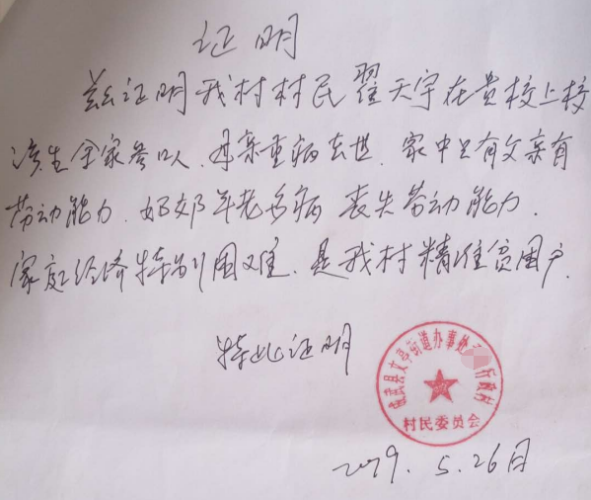 证明
兹证明我村村民翟天宇在贵校上校
该生全家叁口人.母亲重病去世.家中只有父亲有
劳动能力.奶奶年老多病丧失劳动能力.
家庭经济特别困难.是我村精准贫困户.
特此证明
县文亭街道办事处 行政村
村民委员会
2019.5.26日